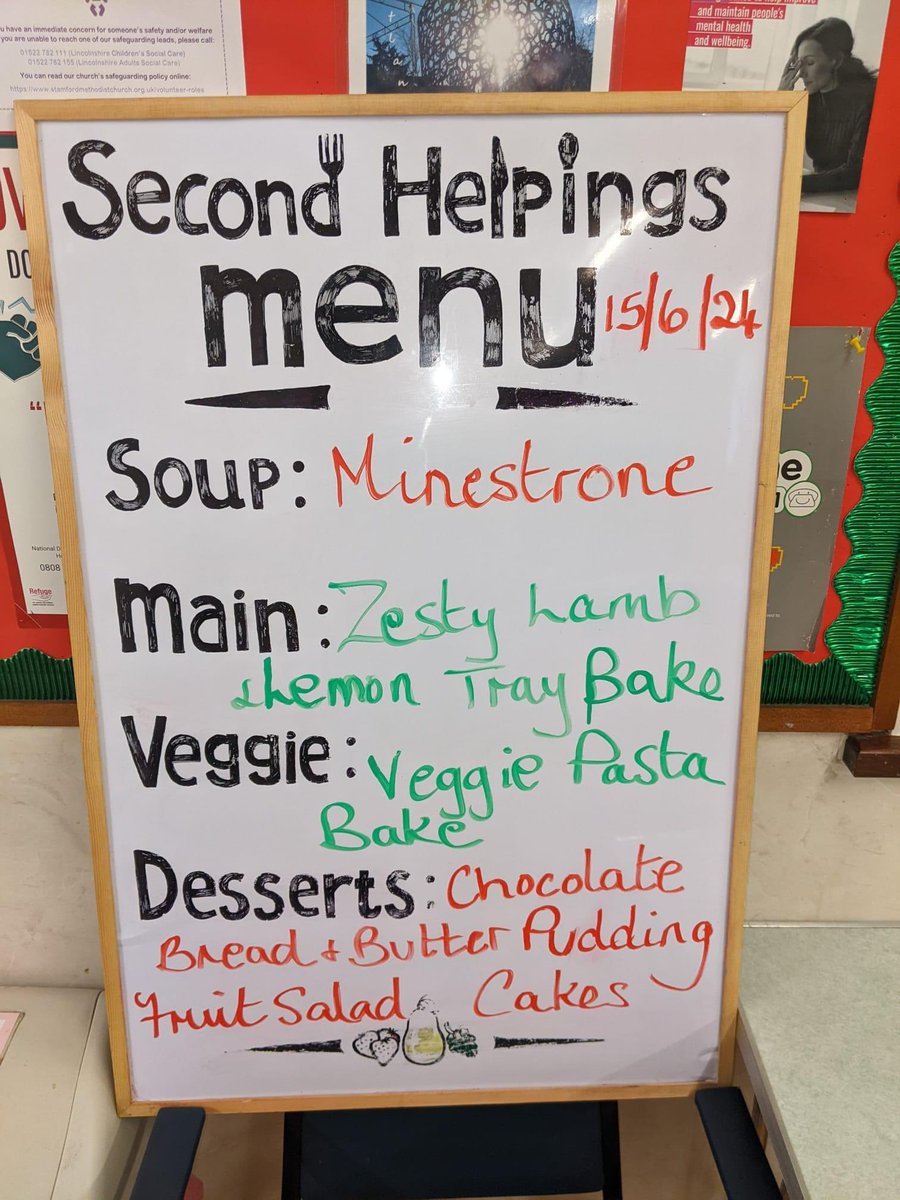 u have an immediate concern for someone's safety and/or welfare
are unable to reach one of our safeguarding leads, please call:
01522 782 111 (Lincolnshire Children's Social Care)
01522 782 155 (Lincolnshire Adults Social Care)
You can read our church's safeguarding policy online:
https://www.stamfordmethodistchurch.org.uk/volunteer-roles
and maintain people's
mental health
and wellbeing.
Second Helpings
menu 15/6/24
Soup: Minestrone
Main: Zesty Lamb
& Lemon Tray Bake
Veggie: Veggie Pasta
Bake
Desserts: Chocolate
Bread & Butter Pudding
Fruit Salad Cakes
DO
National D
0808
Refuge